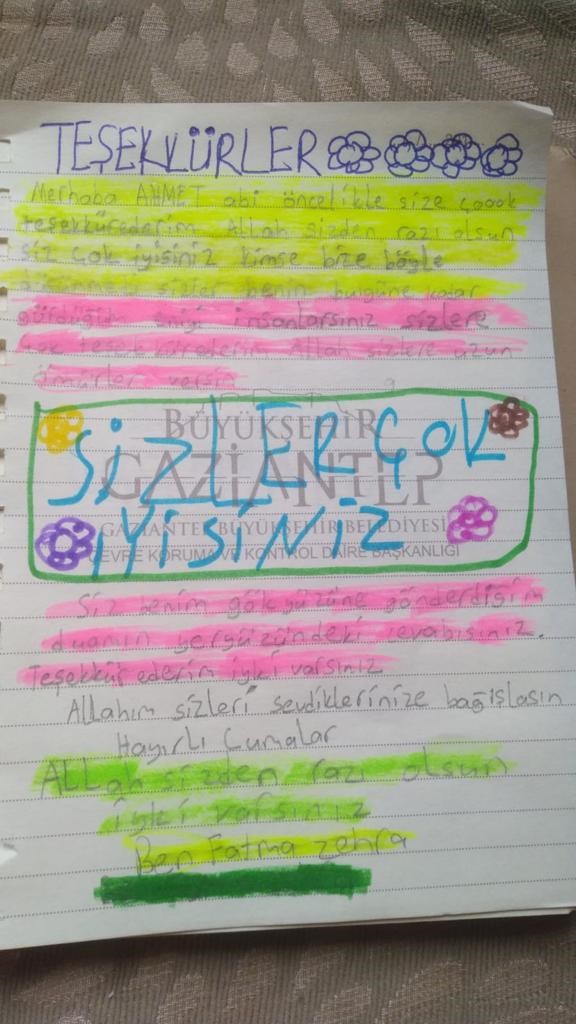 TEŞEKKÜRLER
Merhaba AHMET abi öncelikle size çoook
teşekkürederim Allah sizden razı olsun
siz çok iyisiniz kimse bize böyle
düşünmedi sizler benim bugüne kadar
gördüğüm eniyi insanlarsınız sizlere
çok teşekkürederim Allah sizlere uzun
ömürler versin
BÜYÜKŞEHİR
SİZLER ÇOK
GAZİANTEP
İYİSİNİZ
GAZİANTEP BÜYÜKŞEHİR BELEDİYESİ
ÇEVRE KORUMA VE KONTROL DAİRE BAŞKANLIĞI
Siz benim gökyüzüne gönderdiğim
duamın yeryüzündeki cevabısınız.
Teşekkür ederim iyki varsınız
Allahım sizleri sevdiklerinize bağışlasın
Hayırlı Cumalar
ALLah sizden razı olsun
iyki varsınız
Ben Fatma zehra